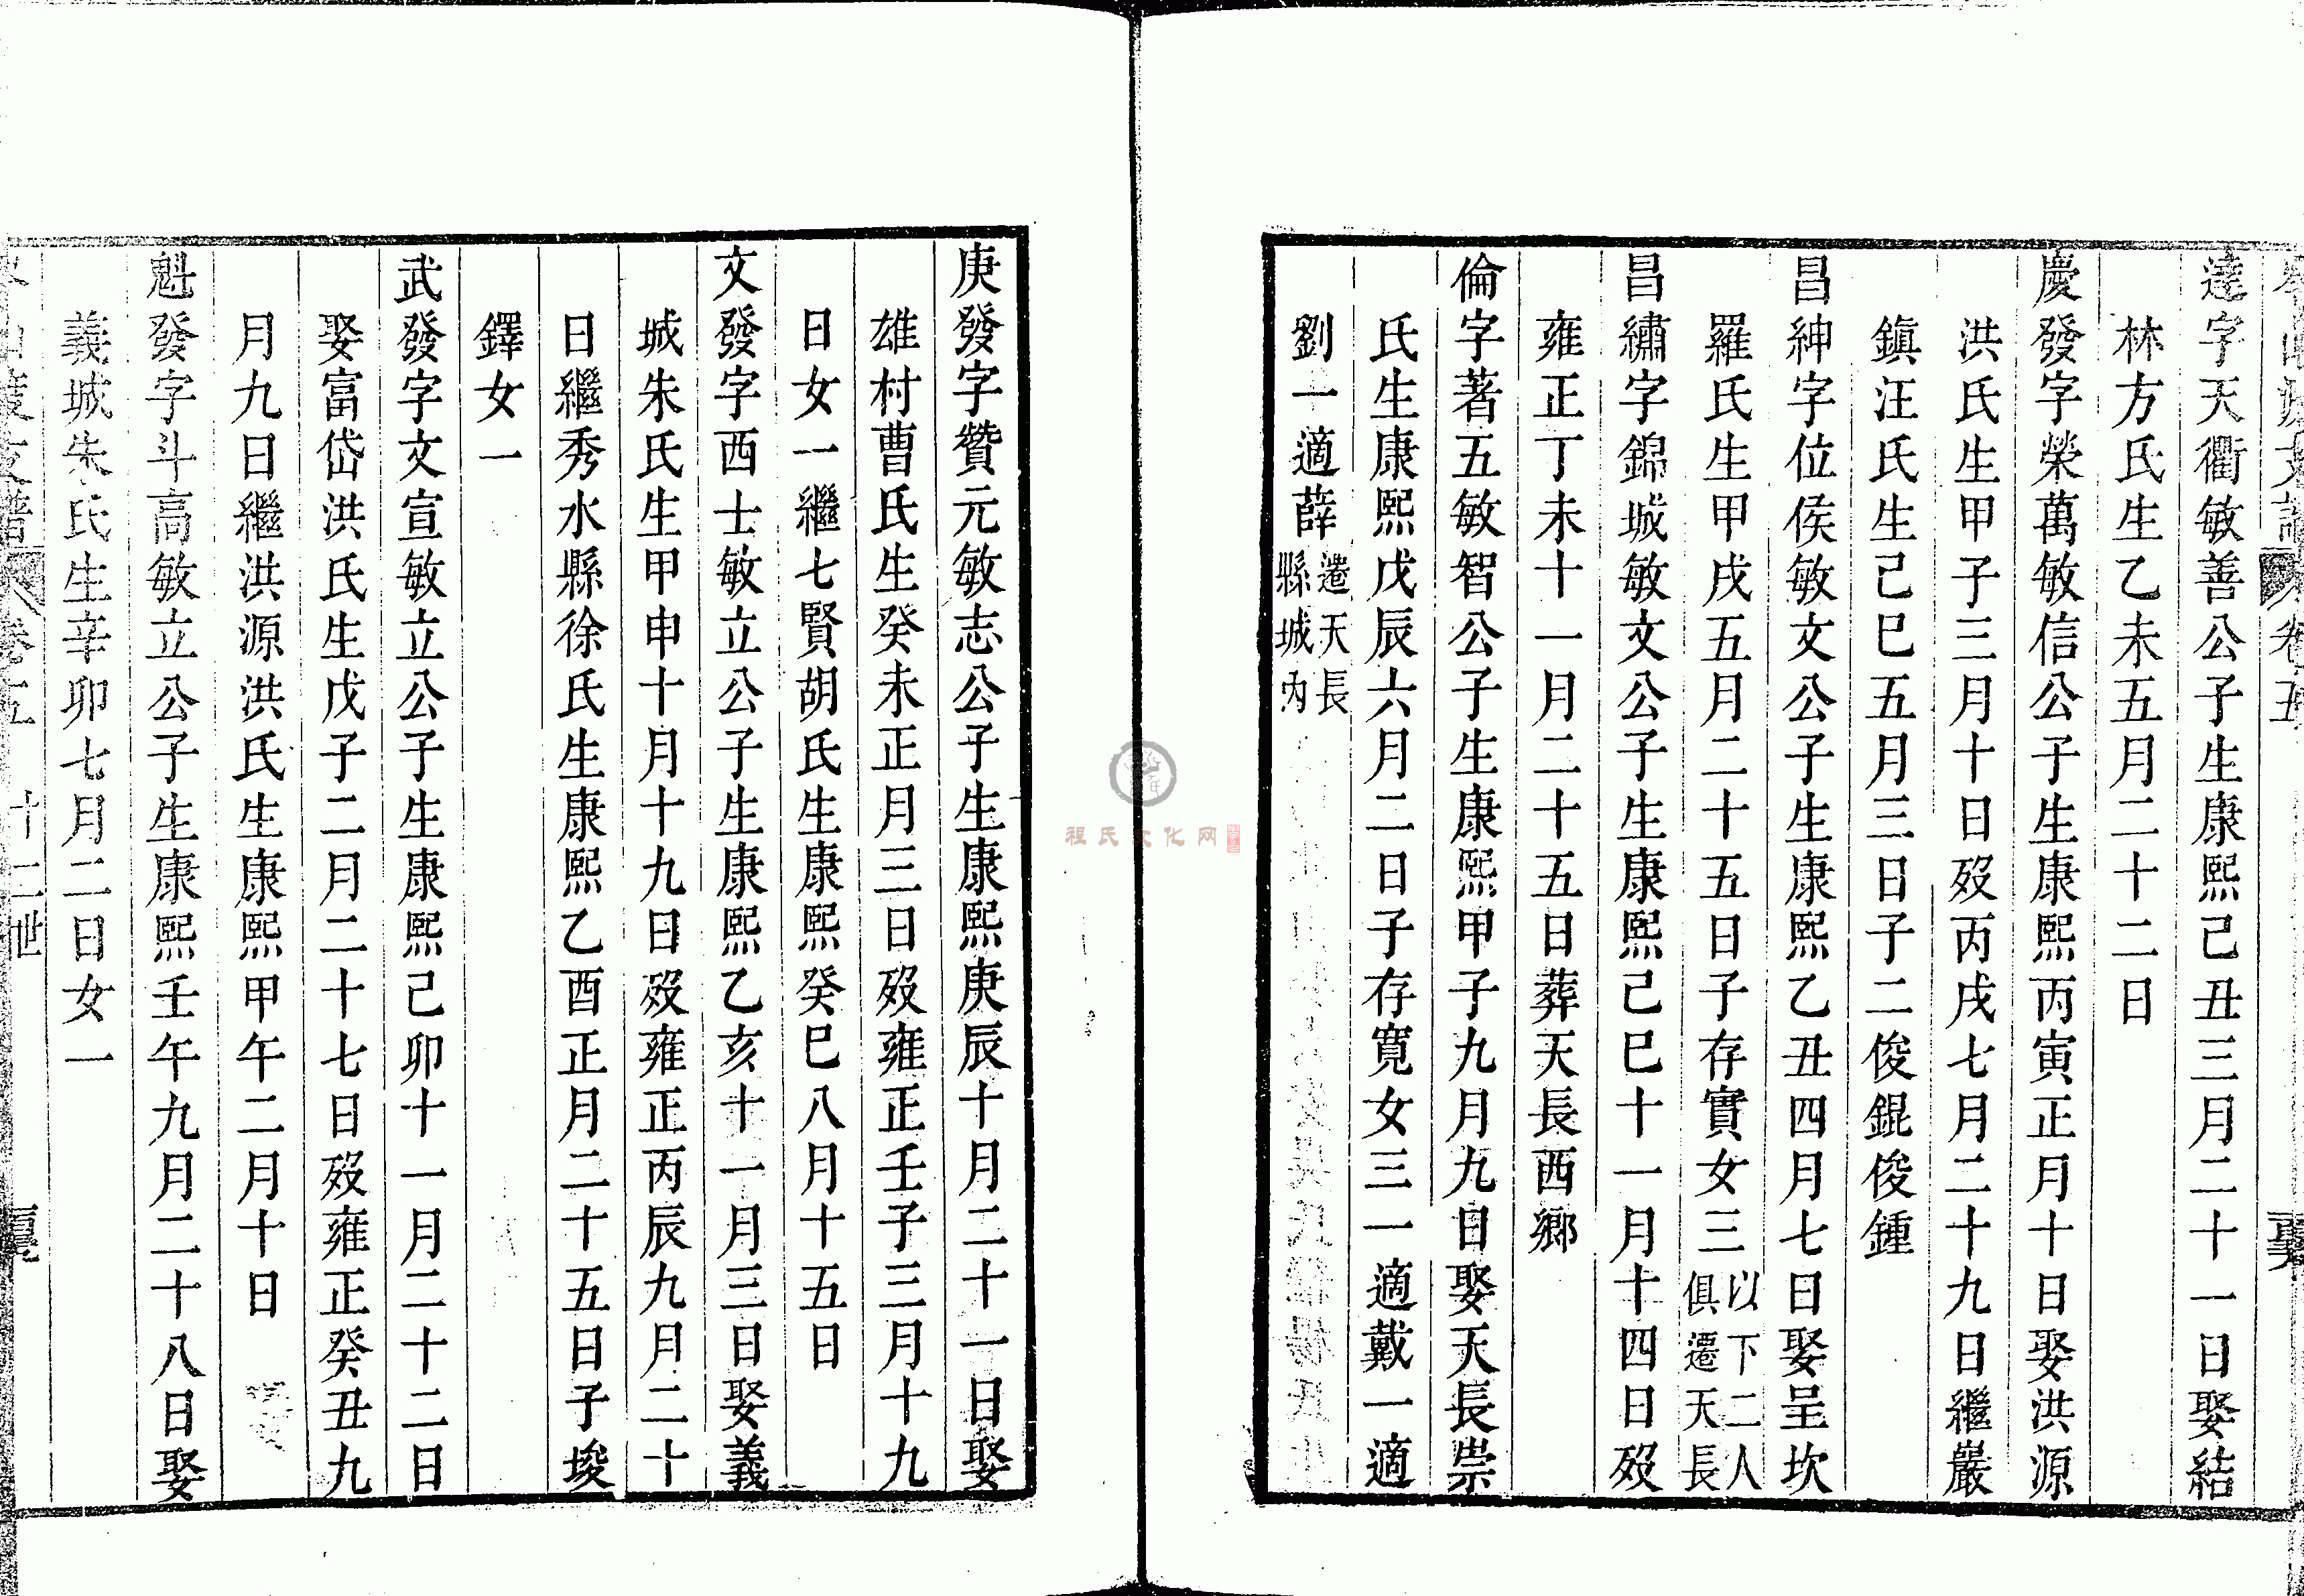 達字天衢敏善公子生康熙己丑三月二十一日娶結
林方氏生乙未五月二十二日
慶發字榮萬敏信公子生康熙丙寅正月十日娶洪源
洪氏生甲子三月十日歿丙戌七月二十九日繼巖
鎮汪氏生己巳五月三日子二俊錕俊鍾
昌紳字位侯敏文公子生康熙乙丑四月七日娶呈坎
羅氏生甲戌五月二十五日子存實女三以下二人俱遷天長
昌繡字錦城敏文公子生康熙己巳十一月十四日歿
雍正丁未十一月二十五日葬天長西鄉
倫字著五敏智公子生康熙甲子九月九日娶天長崇
氏生康熙戊辰六月二日子存寬女三一適戴一適
劉一適薛遷天長縣城內
庚發字贊元敏志公子生康熙庚辰十月二十一日娶
雄村曹氏生癸未正月三日歿雍正壬子三月十九
日女一繼七賢胡氏生康熙癸巳八月十五日
文發字西士敏立公子生康熙乙亥十一月三日娶義
城朱氏生甲申十月十九日歿雍正丙辰九月二十
日繼秀水縣徐氏生康熙乙酉正月二十五日子埈
鐸女一
武發字文宣敏立公子生康熙己卯十一月二十二日
娶富岱洪氏生戊子二月二十七日歿雍正癸丑九
月九日繼洪源洪氏生康熙甲午二月十日
魁發字斗高敏立公子生康熙壬午九月二十八日娶
義城朱氏生辛卯七月二日女一
卷五 十二世
程氏文化网